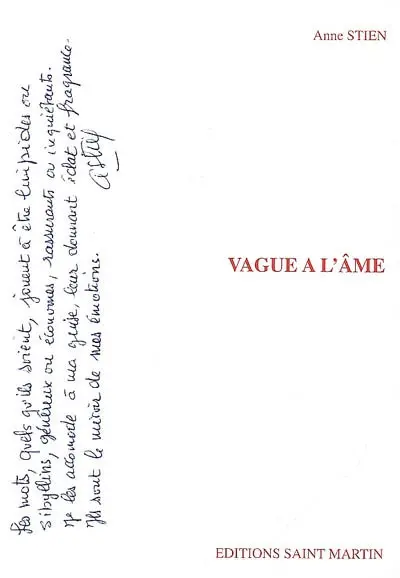 Anne STIEN
VAGUE A L'ÂME
EDITIONS SAINT MARTIN
Les mots, quels qu'ils soient, jouent à être limpides ou
sibyllins, généreux ou économes, rassurants ou inquiétants.
Je les accomode à ma guise, leur donnant éclat et fragrance.
Ils sont le miroir de mes émotions.
AStien